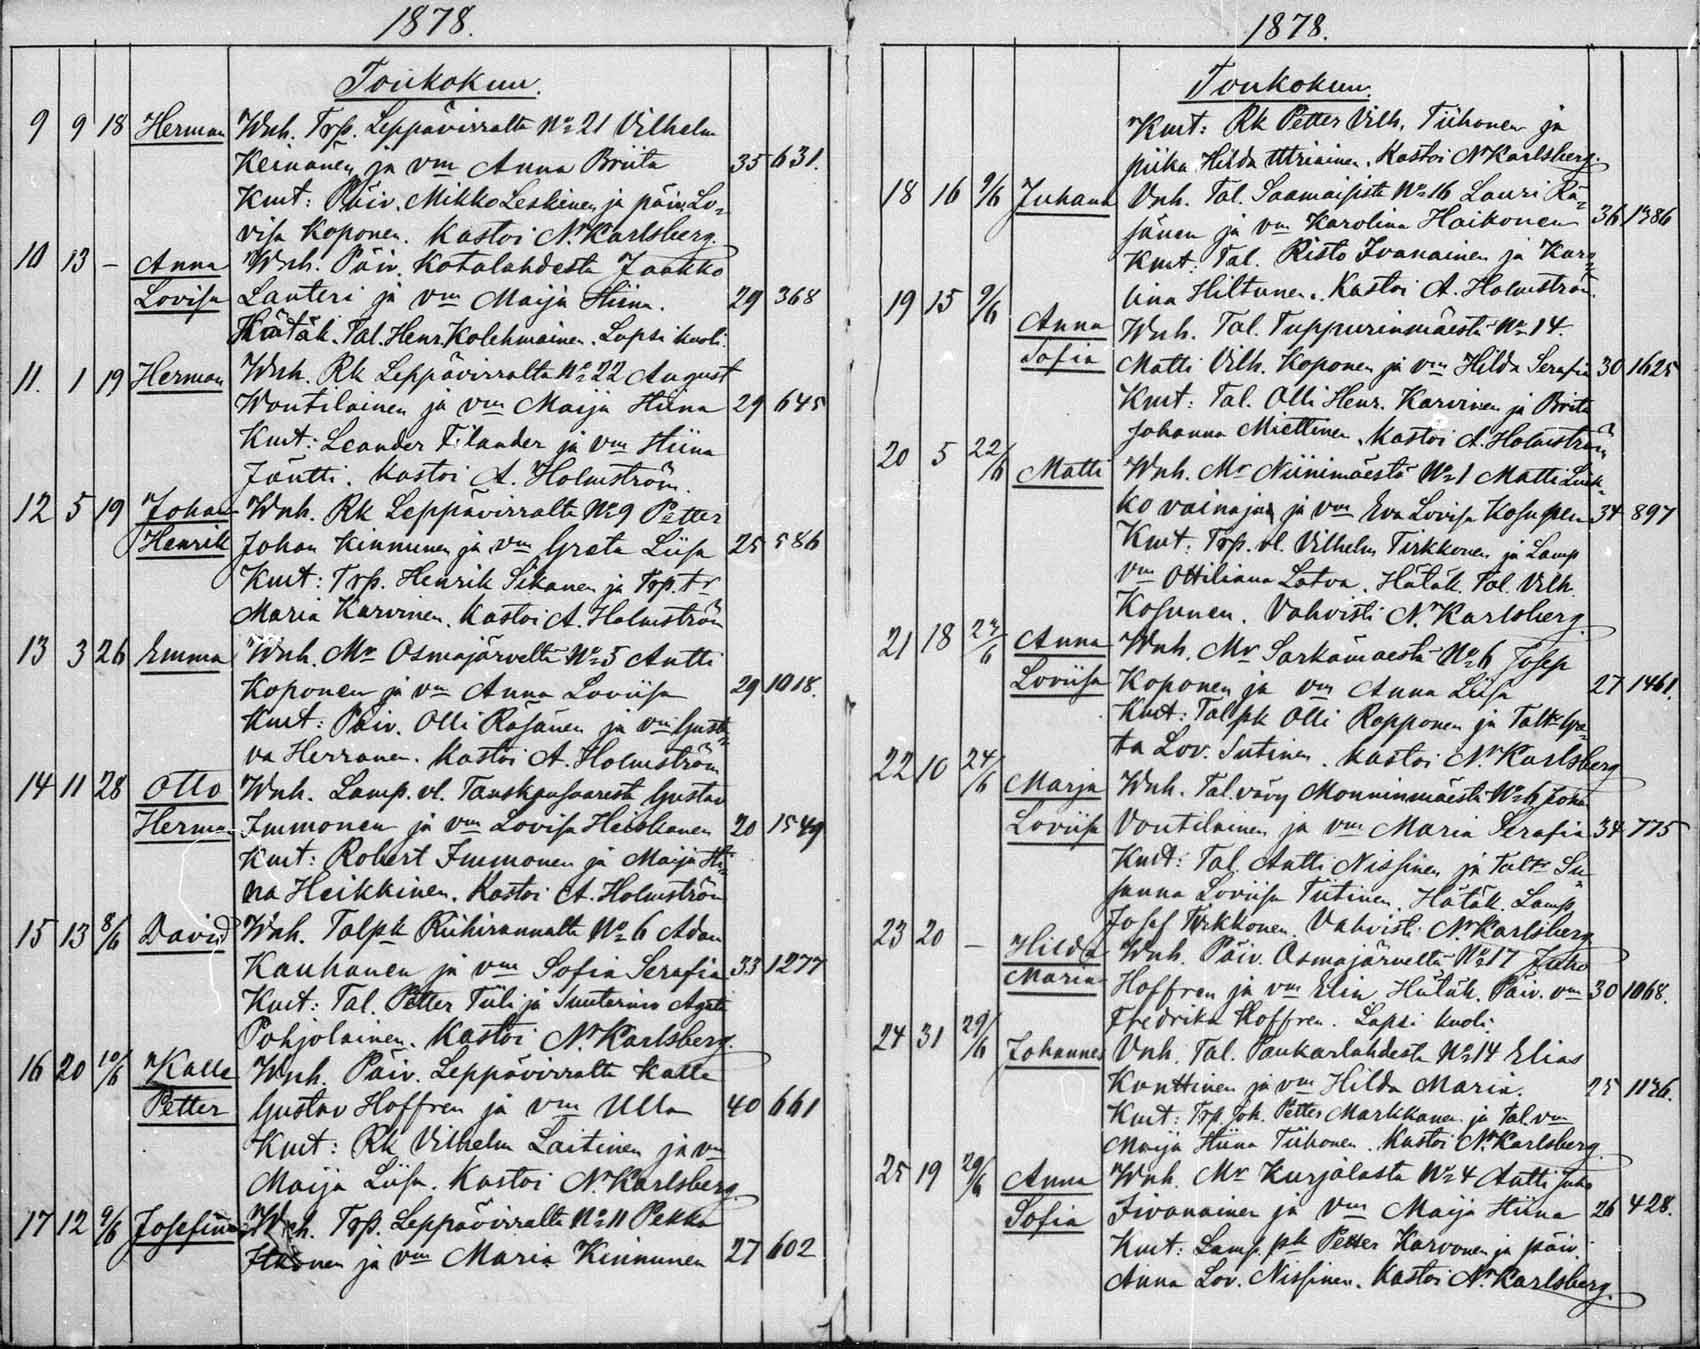 1878.
Toukokuu.
9 9 18 Herman Wnh. Trp. Leppävirralta No 21 Vilhelm
Keinänen ja vm Anna Briita 35 631.
Kmt: Päiv. Mikko Leskinen ja päiv. Lo-
visa Koponen. Kastoi N. Karlsberg.
10 13 – Anna Wnh. Päiv. Kotalahdesta Jaakko
Lovisa Lanteri ja vm Maija Hiina. 29 368
Hätäk. Tal. Henr. Kolehmainen. Lapsi kuoli.
11. 1 19 Herman Wnh. Rk Leppävirralta No 22 August
Woutilainen ja vm Maija Hiina 29 645
Kmt: Leander Filander ja vm Hiina
Jäntti. Kastoi A. Holmström.
12 5 19 Johan Wnh. Rk Leppävirralta No 9 Petter
Henrik Johan Kinnunen ja vm Greta Liisa 25 586
Kmt: Trp. Henrik Sikanen ja Trp. tr
Maria Karvinen. Kastoi A. Holmström
13 3 26 Emma Wnh. Mr Osmajärveltä No 5 Antti
Koponen ja vm Anna Loviisa 29 1018.
Kmt: Päiv. Olli Räsänen ja vm Gusta-
va Herranen. Kastoi A. Holmström
14 11 28 Otto Wnh. Lamp. vl. Tanskansaaresta Gustav
Herman Immonen ja vm Lovisa Heiskanen 20 1549
Kmt: Robert Immonen ja Maija Hi-
na Heikkinen. Kastoi A. Holmström
15 13 8/6 David Wnh. Talpk Riihirannalta No 6 Adam
Kauhanen ja vm Sofia Serafia 33 1277
Kmt: Tal. Petter Tuli ja Suutarinvo Agata
Pohjolainen. Kastoi N. Karlsberg.
16 20 10/6 Kalle Wnh. Päiv. Leppävirralta Kalle
Petter Gustav Hoffren ja vm Ulla 40 661
Kmt: Rk Vilhelm Laitinen ja vm
Maija Liisa. Kastoi N. Karlsberg.
17 12 9/6 Josefiina Wnh. Trp. Leppävirralta No 11 Pekka
Ikonen ja vm Maria Kinnunen 27 602
1878.
Toukokuu.
Kmt: Rk Petter Vilh. Tiihonen ja
piika Hilda Utriainen. Kastoi N. Karlsberg.
18 16 9/6 Juhana Vnh. Tal. Saamaisista No 16 Lauri Rä-
sänen ja vm Karolina Haikonen 36 1386
Kmt: Tal. Risto Ivanainen ja Karo-
lina Hiltunen. Kastoi A. Holmström.
19 15 9/6 Anna Wnh. Tal. Tuppurinmäestä No 14.
Sofia Matti Vilh. Koponen ja vm Hilda Serafia 30 1625
Kmt: Tal. Olli Henr. Karvinen ja Briita
Johanna Miettinen. Kastoi A. Holmström
20 5 22/6 Matti Wnh. Mr Niinimäestä No 1 Matti Link-
ko vainajan ja vm Eva Lovisa Kosunen 34 897
Kmt: Trp. vl. Vilhelm Tirkkonen ja Lamp
vm Ottiliana Latva. Hätäk. Tal. Vilh.
Kosunen. Vahvisti N. Karlsberg.
21 18 23/6 Anna Wnh. Mr Sarkamäestä No 6 Josep
Loviisa Koponen ja vm Anna Liisa 27 1461.
Kmt: Talpk Olli Ropponen ja Taltr Gre-
ta Lov. Sutinen. Kastoi N. Karlsberg
22 10 24/6 Marja Wnh. Tal. vävy Monninmäestä No 6 Joha
Loviisa Voutilainen ja vm Maria Serafia 34 775
Kmt: Tal. Antti Nissinen ja Taltr Su-
sanna Loviisa Tiitinen. Hätäk. Lamp
Josef Tirkkonen. Vahvisti N. Karlsberg
23 20 – Hilda Wnh. Päiv. Osmajärveltä No 17 Juho
Maria Hoffren ja vm Elin. Hätäk. Päiv. vm 30 1068.
Fredrika Hoffren. Lapsi kuoli.
24 31 29/6 Johannes Vnh. Tal. Paukarlahdesta No 14 Elias
Konttinen ja vm Hilda Maria. 25 1126.
Kmt: Trp. Joh. Petter Markkanen ja Tal. vm
Maija Hiina Tiihonen. Kastoi N. Karlsberg.
25 19 29/6 Anna Wnh. Mr Kurjalasta No 4 Antti Juho
Sofia Iivanainen ja vm Maija Hiina 26 428.
Kmt: Lamp. pk Petter Karvonen ja päiv.
Anna Lov. Nissinen. Kastoi N. Karlsberg.